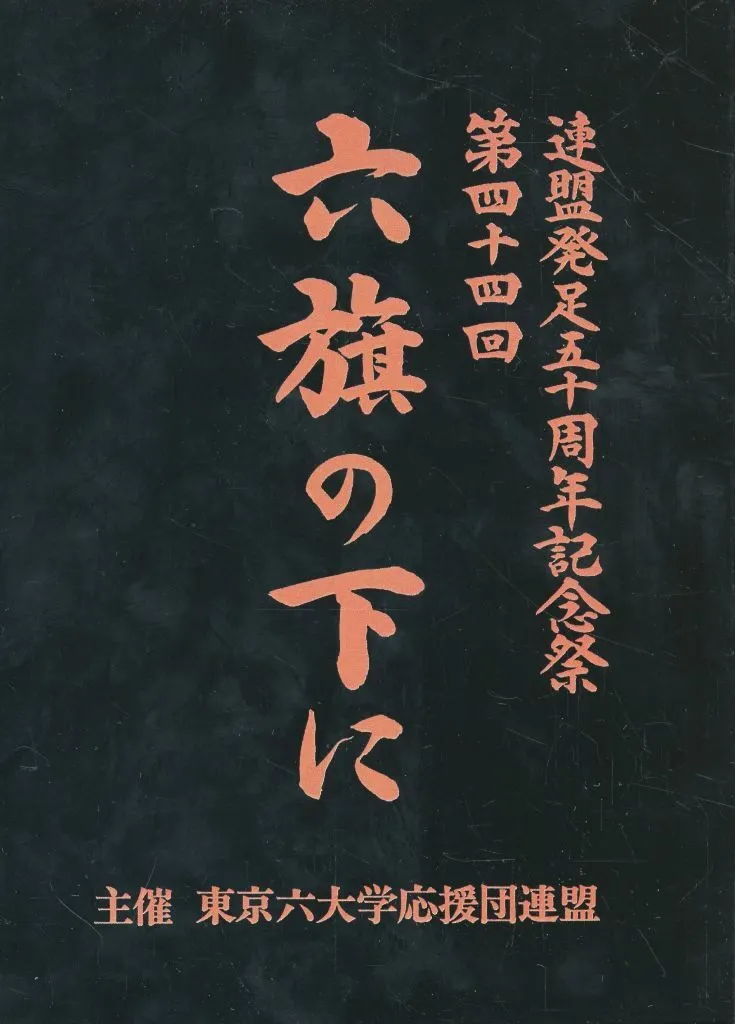 連盟発足五十周年記念祭
第四十四回
六旗の下に
主催 東京六大学応援団連盟